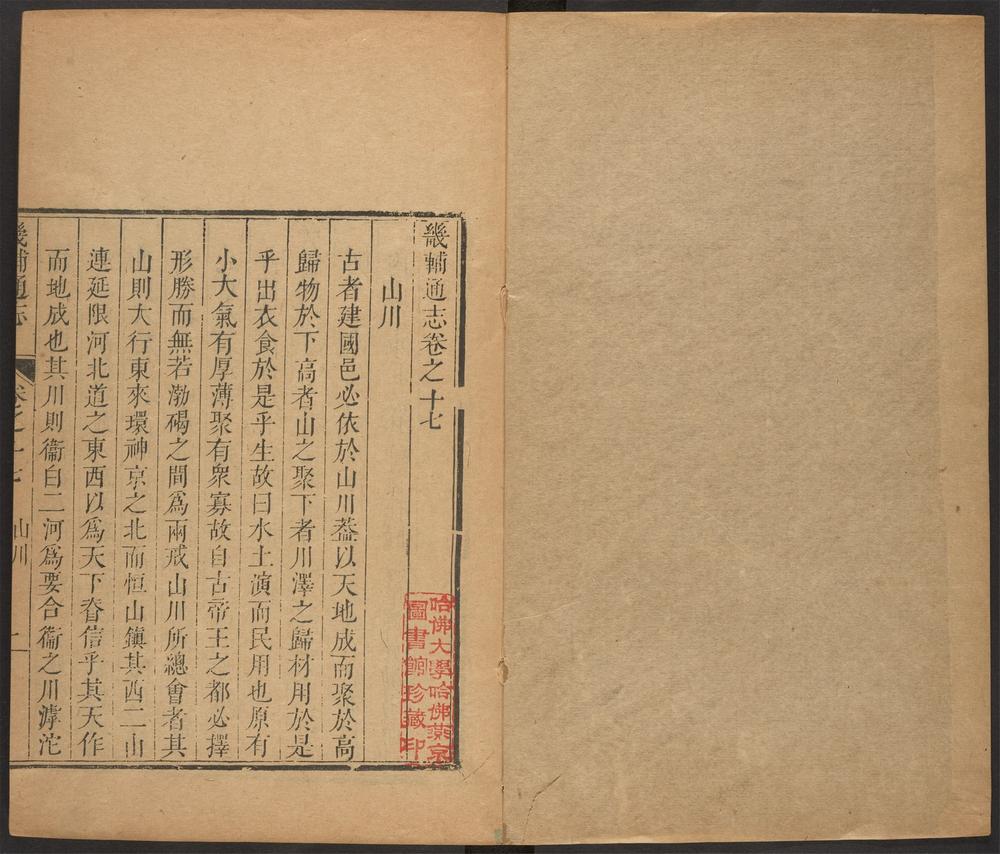 畿輔通志卷之十七
哈佛大學哈佛燕京
圖書館珍藏印
山川
古者建國邑必依於山川葢以天地成而聚於高
歸物於下高者山之聚下者川澤之歸材用於是
乎出衣食於是乎生故曰水土演而民用也原有
小大氣有厚薄聚有衆寡故自古帝王之都必擇
形勝而無若渤碣之間爲兩戒山川所總會者其
山則大行東來環神京之北而恒山鎮其西二山
連延限河北道之東西以爲天下脊信乎其天作
而地成也其川則衞白二河爲要合衞之川滹沱
畿輔通志
卷之十七
山川
一